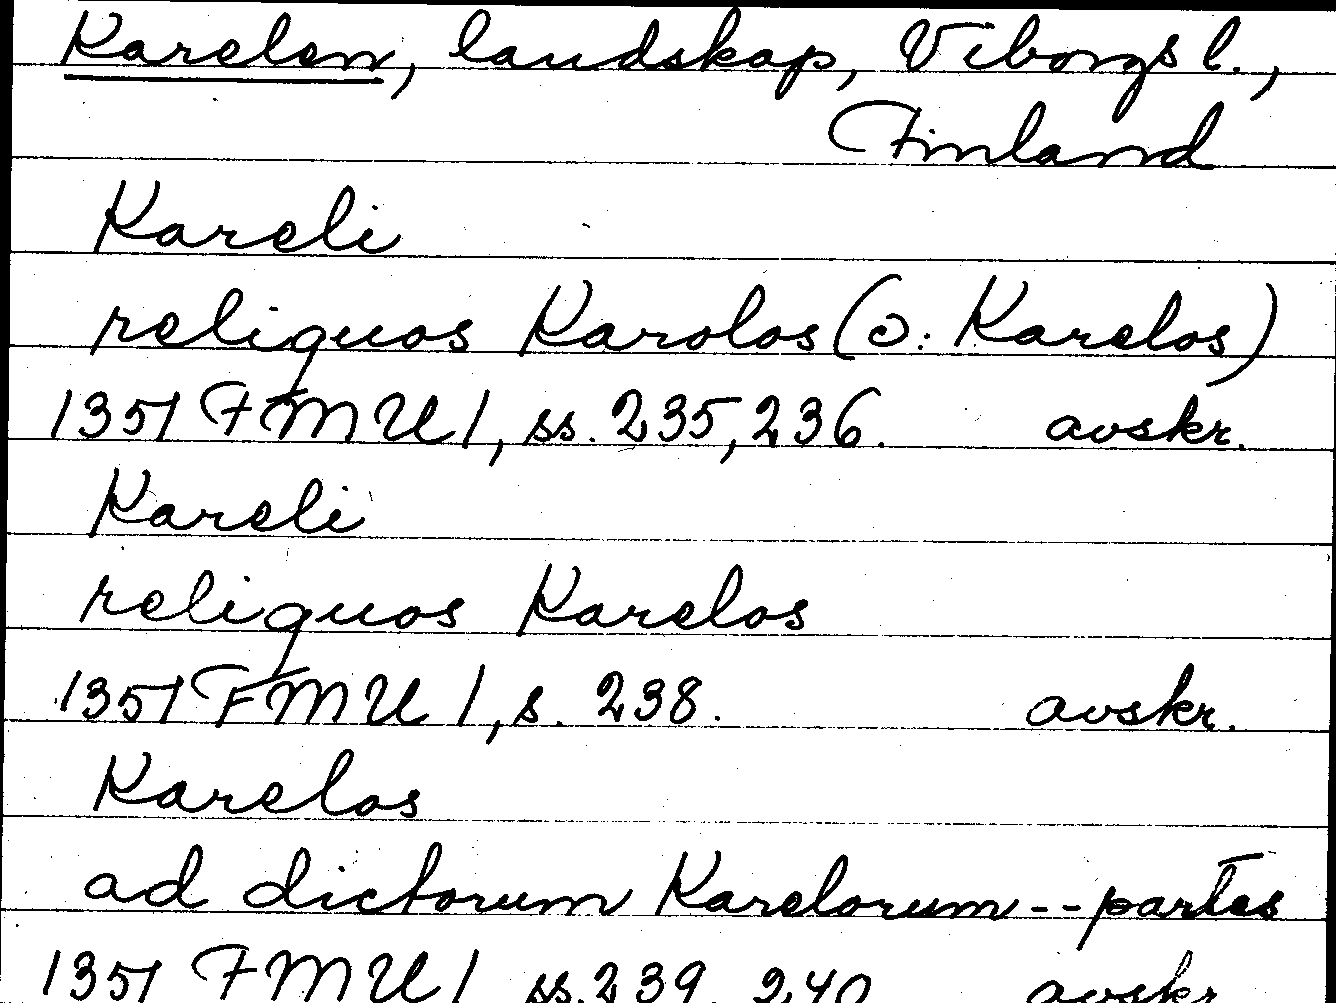 Karelen, landskap, Viborgs l.,
Finland
Kareli
reliquos Karolos (ɔ: Karelos)
1351 FMU 1, ss. 235, 236. avskr.
Kareli
reliquos Karelos
1351 FMU 1, s. 238. avskr.
Karelos
ad dictorum Karelorum -- partes
1351 FMU 1 ss. 239, 240 avskr